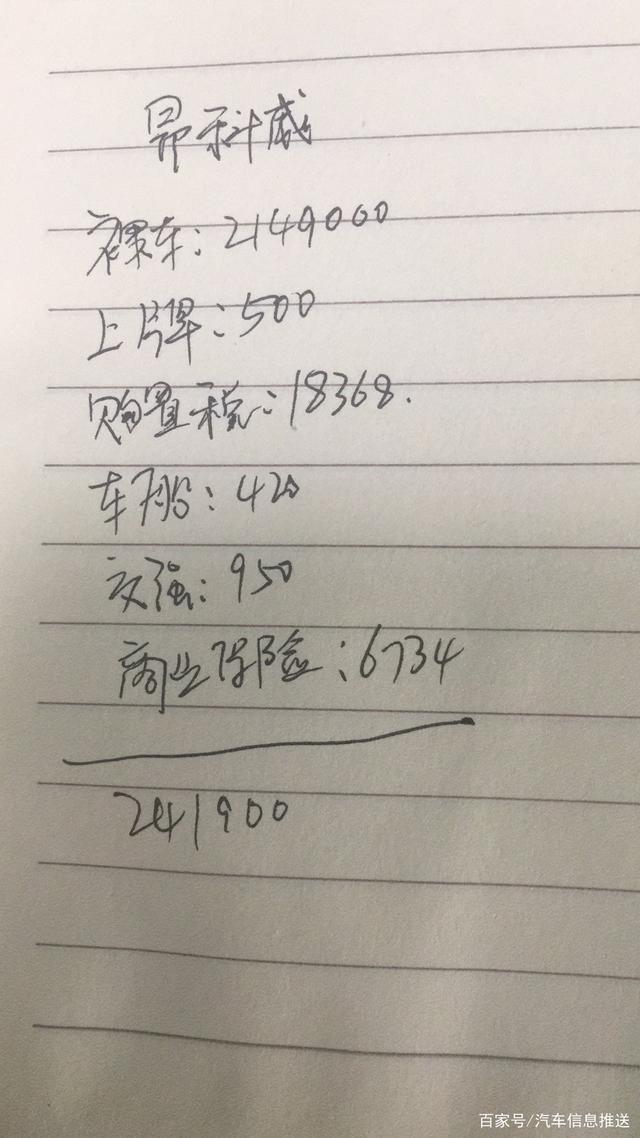 昂科威
裸车：2149000
上牌：500
购置税：18368.
车船：420
交强：950
商业保险：6734
241900
百家号/汽车信息推送